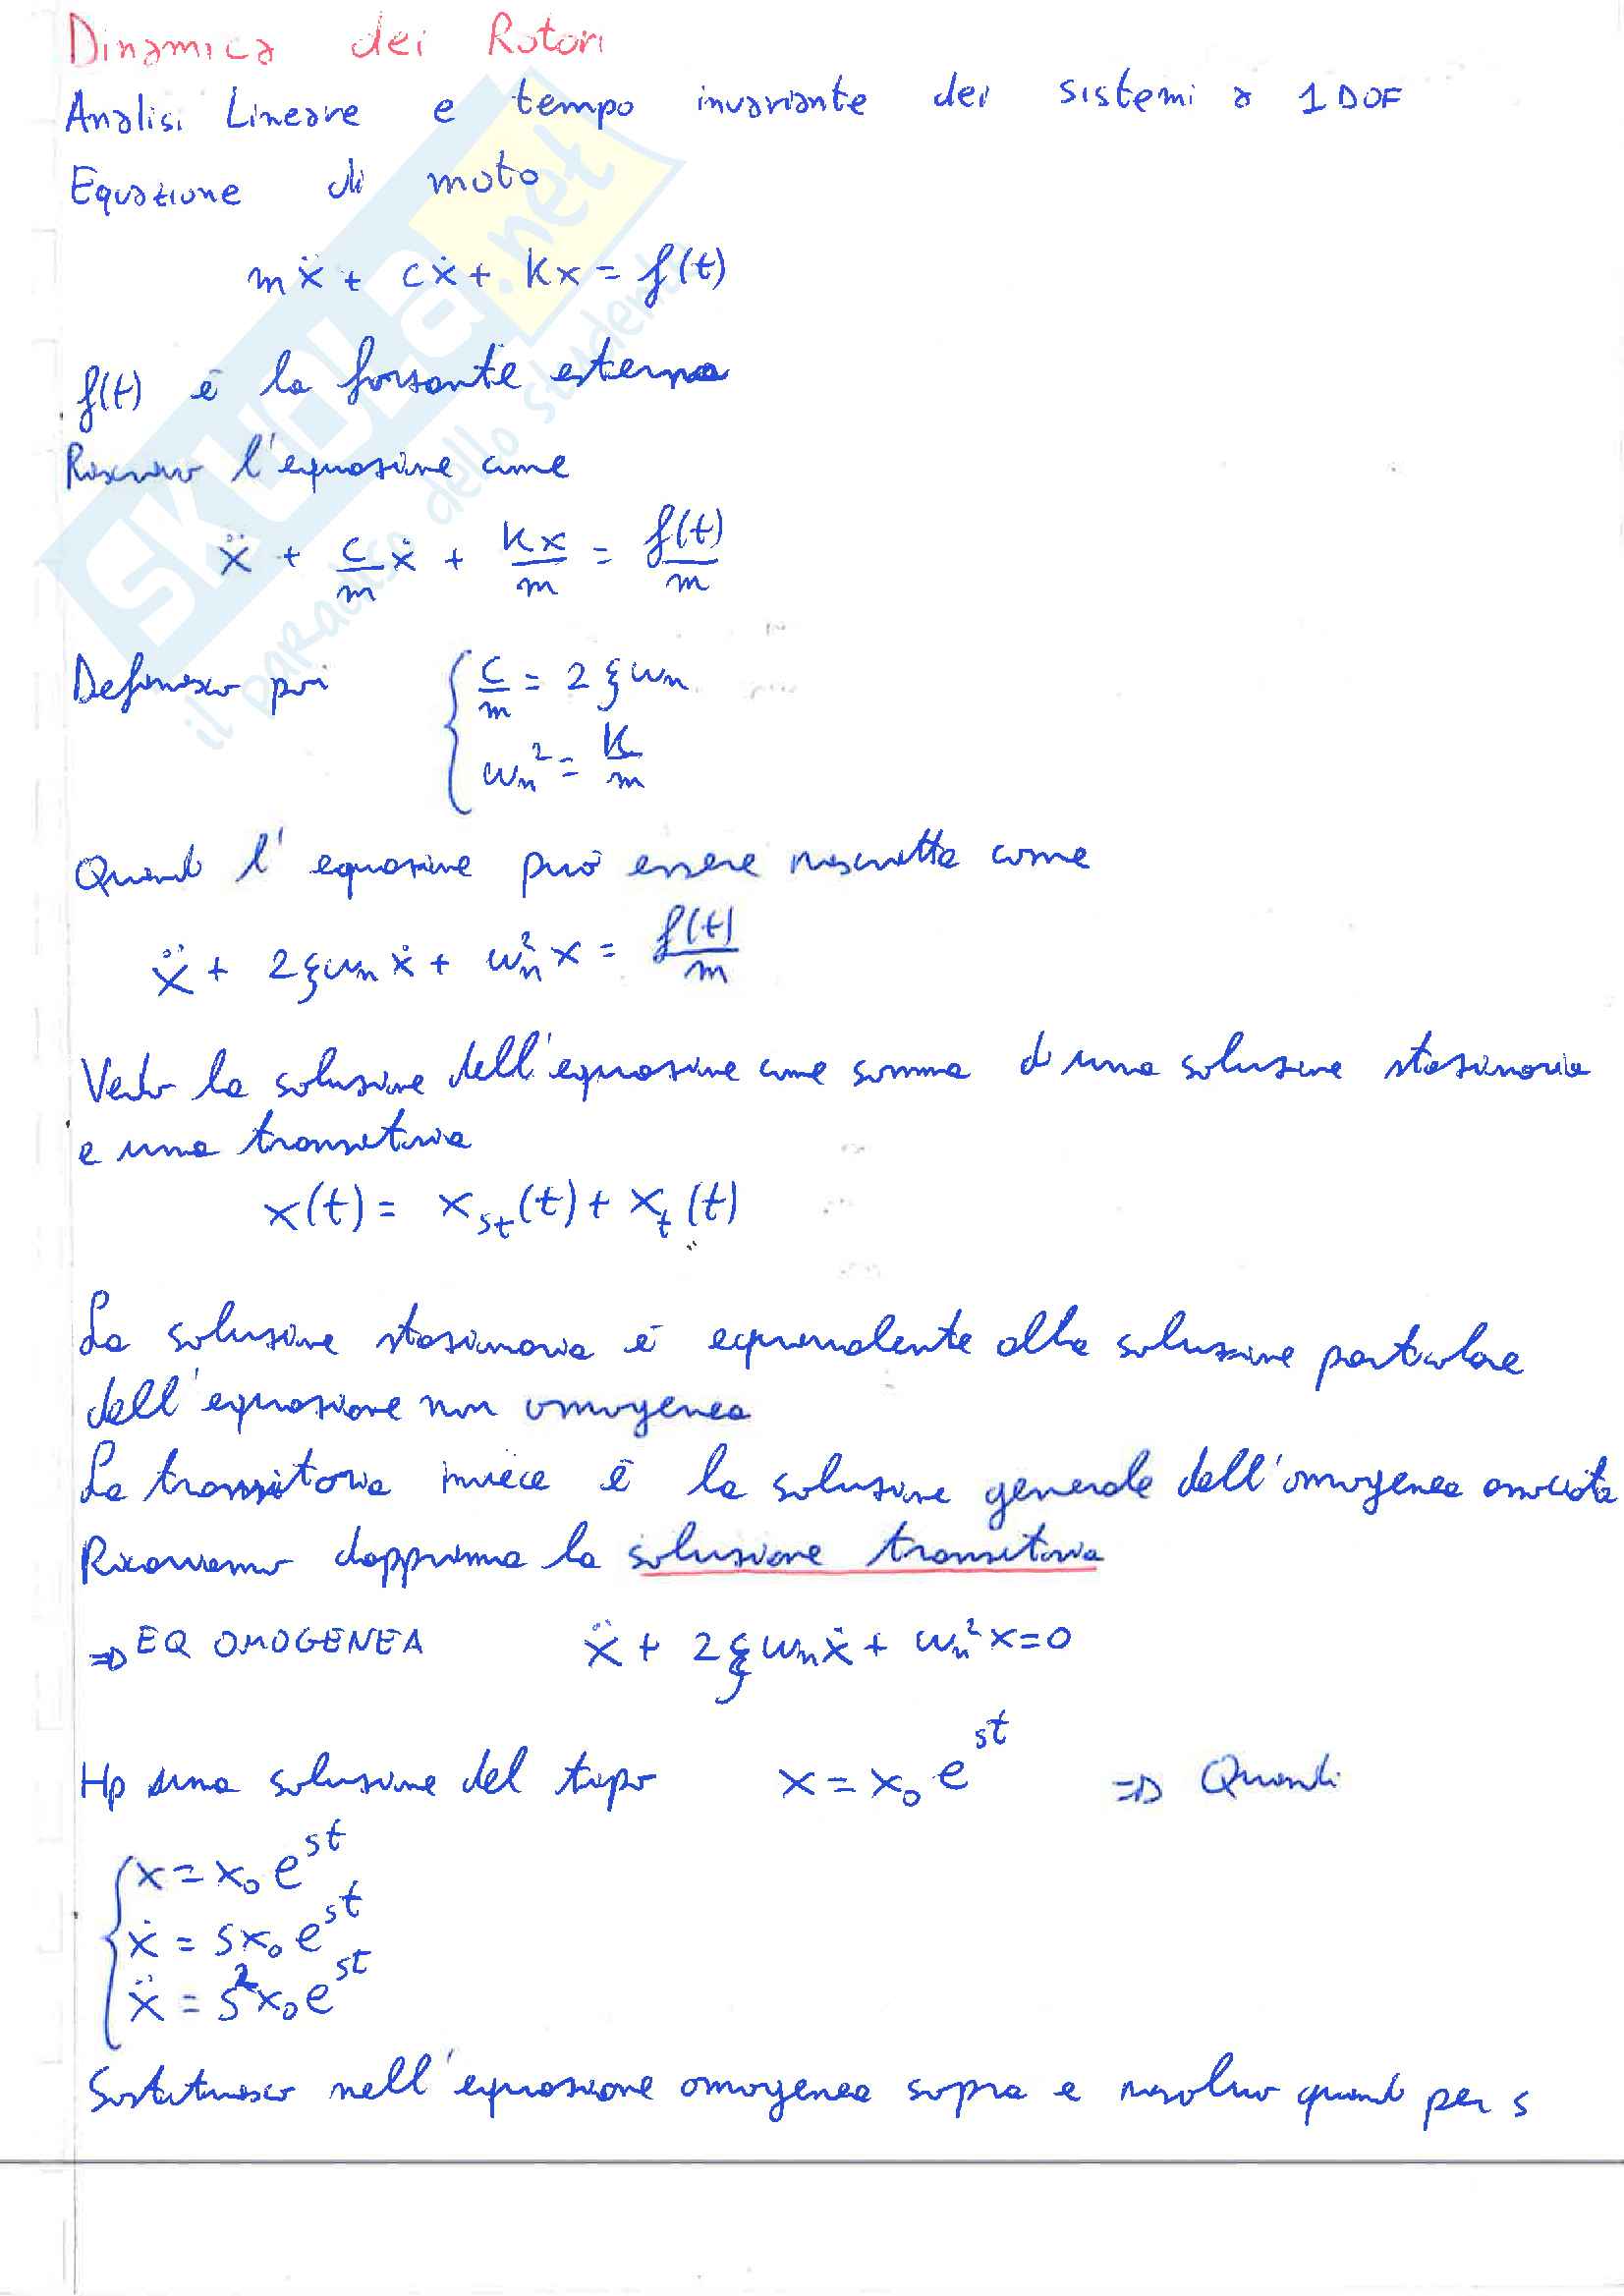 Dinamica dei Rotori
Analisi Lineare e tempo invariante dei sistemi a 1 DOF
Equazione di moto
mẍ + cẋ + kx = f(t)
f(t) è la forzante esterna
Riscrivo l'equazione come
ẍ + c/m ẋ + kx/m = f(t)/m
Definisco poi { c/m = 2ξωn
ωn² = k/m
Quindi l'equazione può essere riscritta come
ẍ + 2ξωnẋ + ωn²x = f(t)/m
Vedo la soluzione dell'equazione come somma di una soluzione stazionaria
e una transitoria
x(t) = xst(t) + xt(t)
La soluzione stazionaria è equivalente alla soluzione particolare
dell'equazione non omogenea
La transitoria invece è la soluzione generale dell'omogenea associata
Ricaviamo dapprima la soluzione transitoria
⇒ EQ OMOGENEA ẍ + 2ξωnẋ + ωn²x = 0
Hp una soluzione del tipo x = x₀e^st ⇒ Quindi
{ x = x₀e^st
ẋ = sx₀e^st
ẍ = s²x₀e^st
Sostituisco nell'equazione omogenea sopra e risolvo quindi per s
SKUOLA.net
il paradiso dello studente